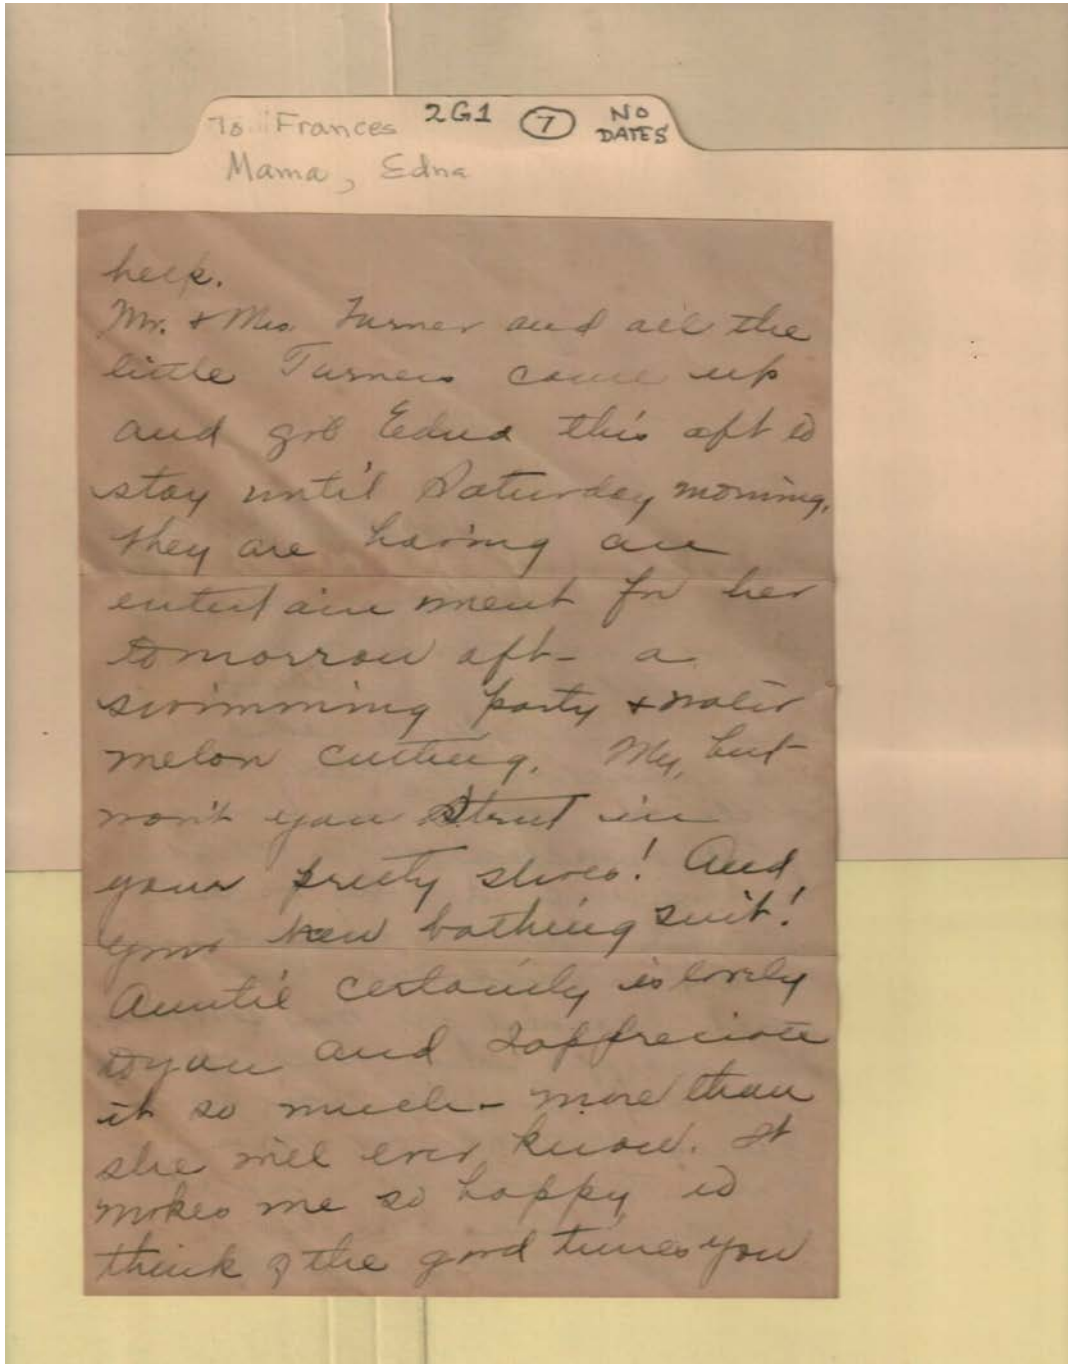 To Frances 2G1 7 NO DATES
Mama, Edna
help.
Mr. & Mrs. Turner and all the
little Turners came up
and got Edna this aft to
stay until Saturday morning,
they are having an
entertainment for her
tomorrow aft - a
swimming party & water
melon cutting. My, but
won't you strut in
your pretty shoes! And
your new bathing suit!
Auntie certainly is lovely
to you and I appreciate
it so much - more than
she will ever know. It
makes me so happy to
think of the good times you